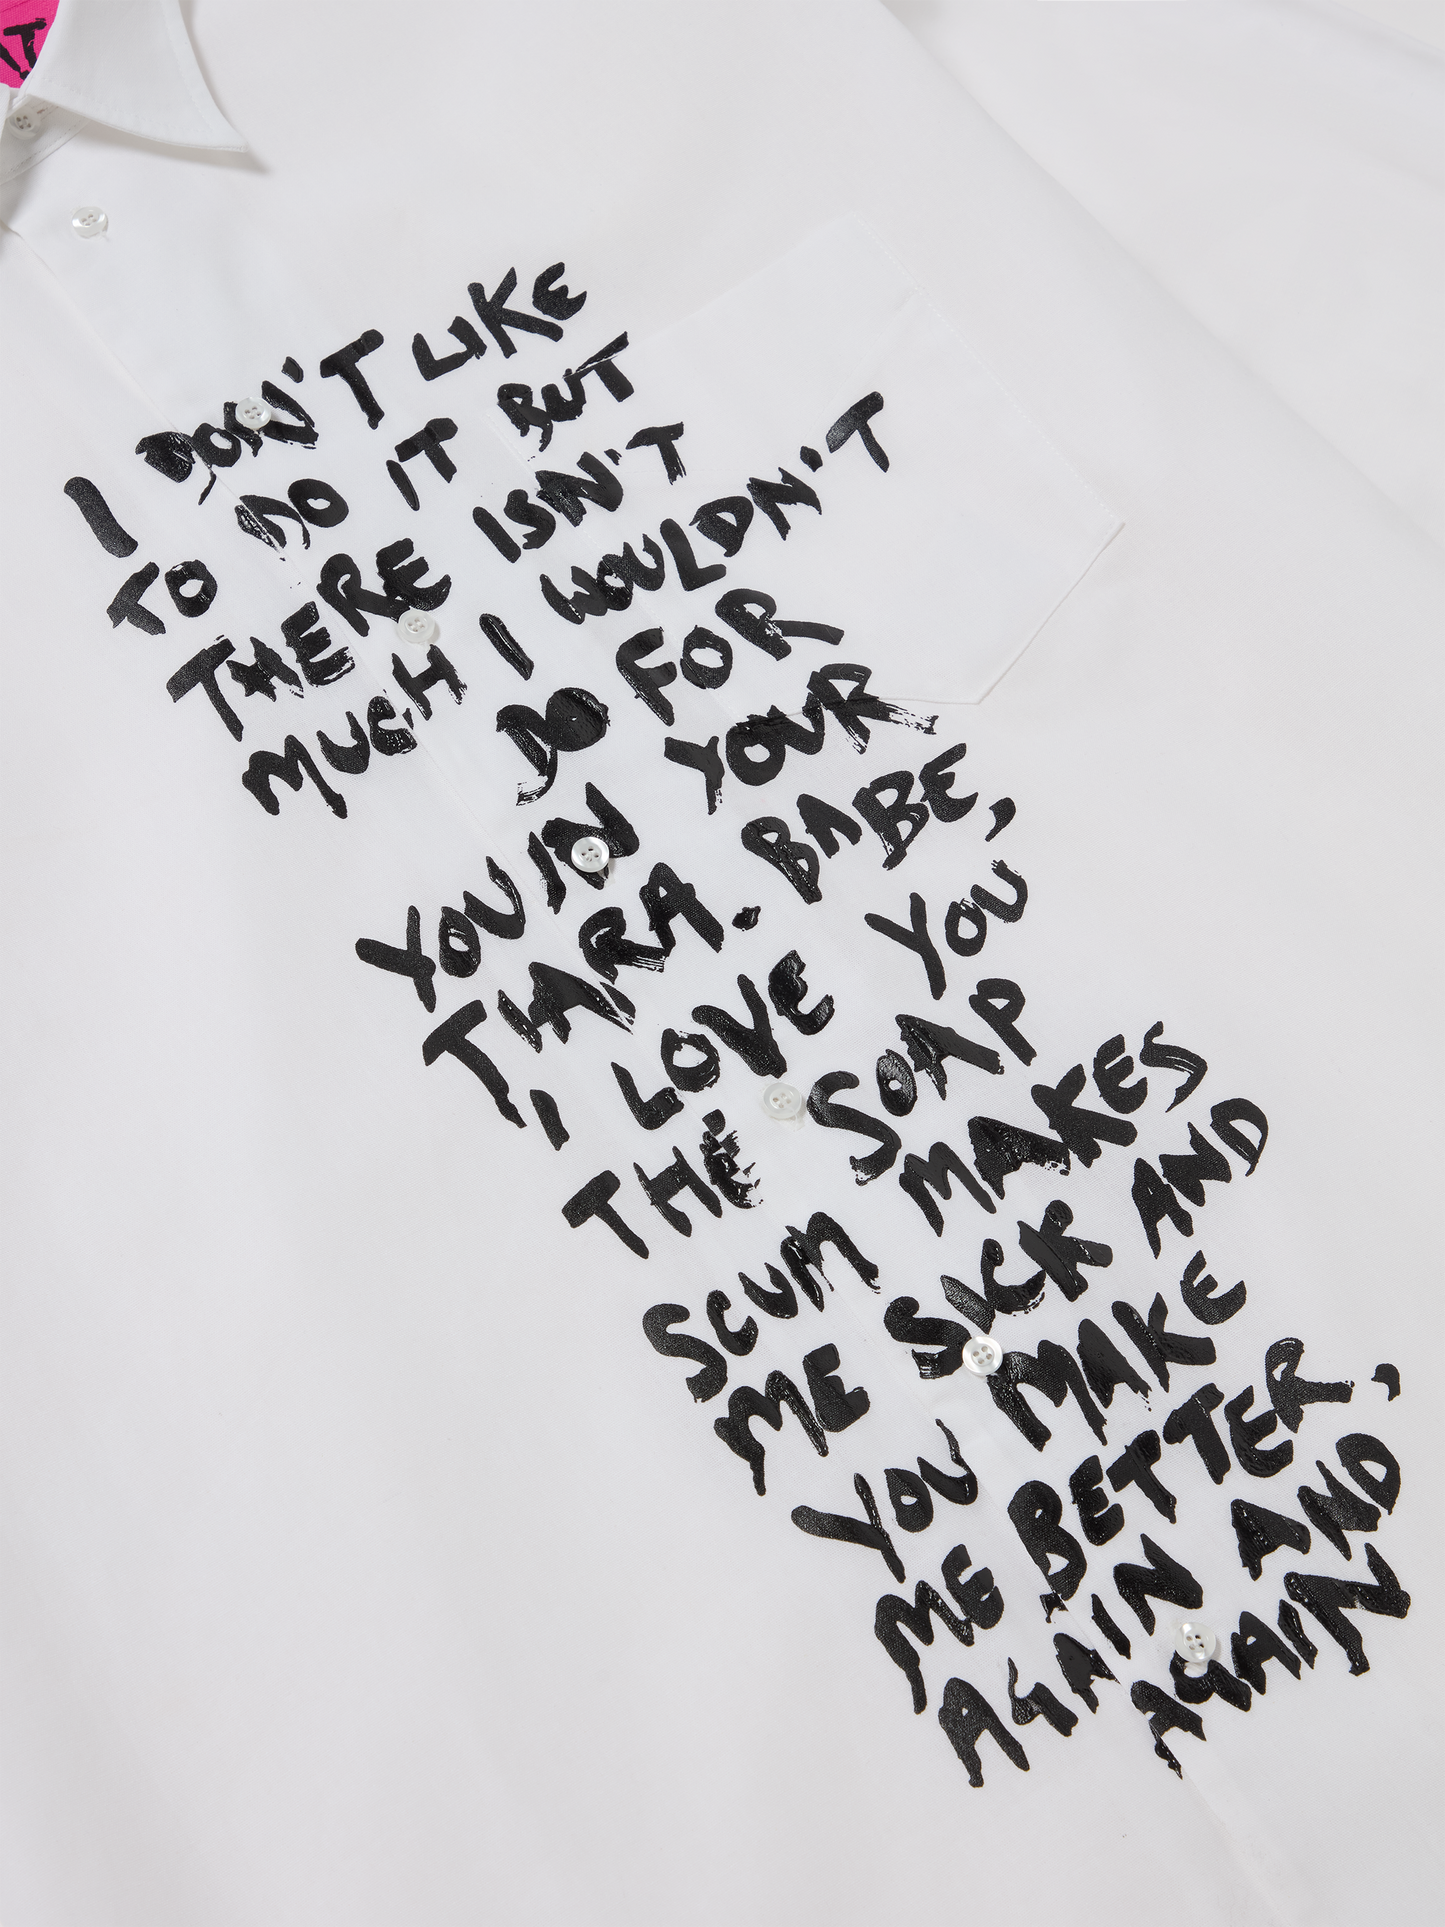 I DON'T LIKE
TO DO IT BUT
THERE ISN'T
MUCH I WOULDN'T
DO FOR
YOU IN YOUR
TIARA. BABE,
I LOVE YOU
THE SOAP
SCUM MAKES
ME SICK AND
YOU MAKE
ME BETTER,
AGAIN AND
AGAIN